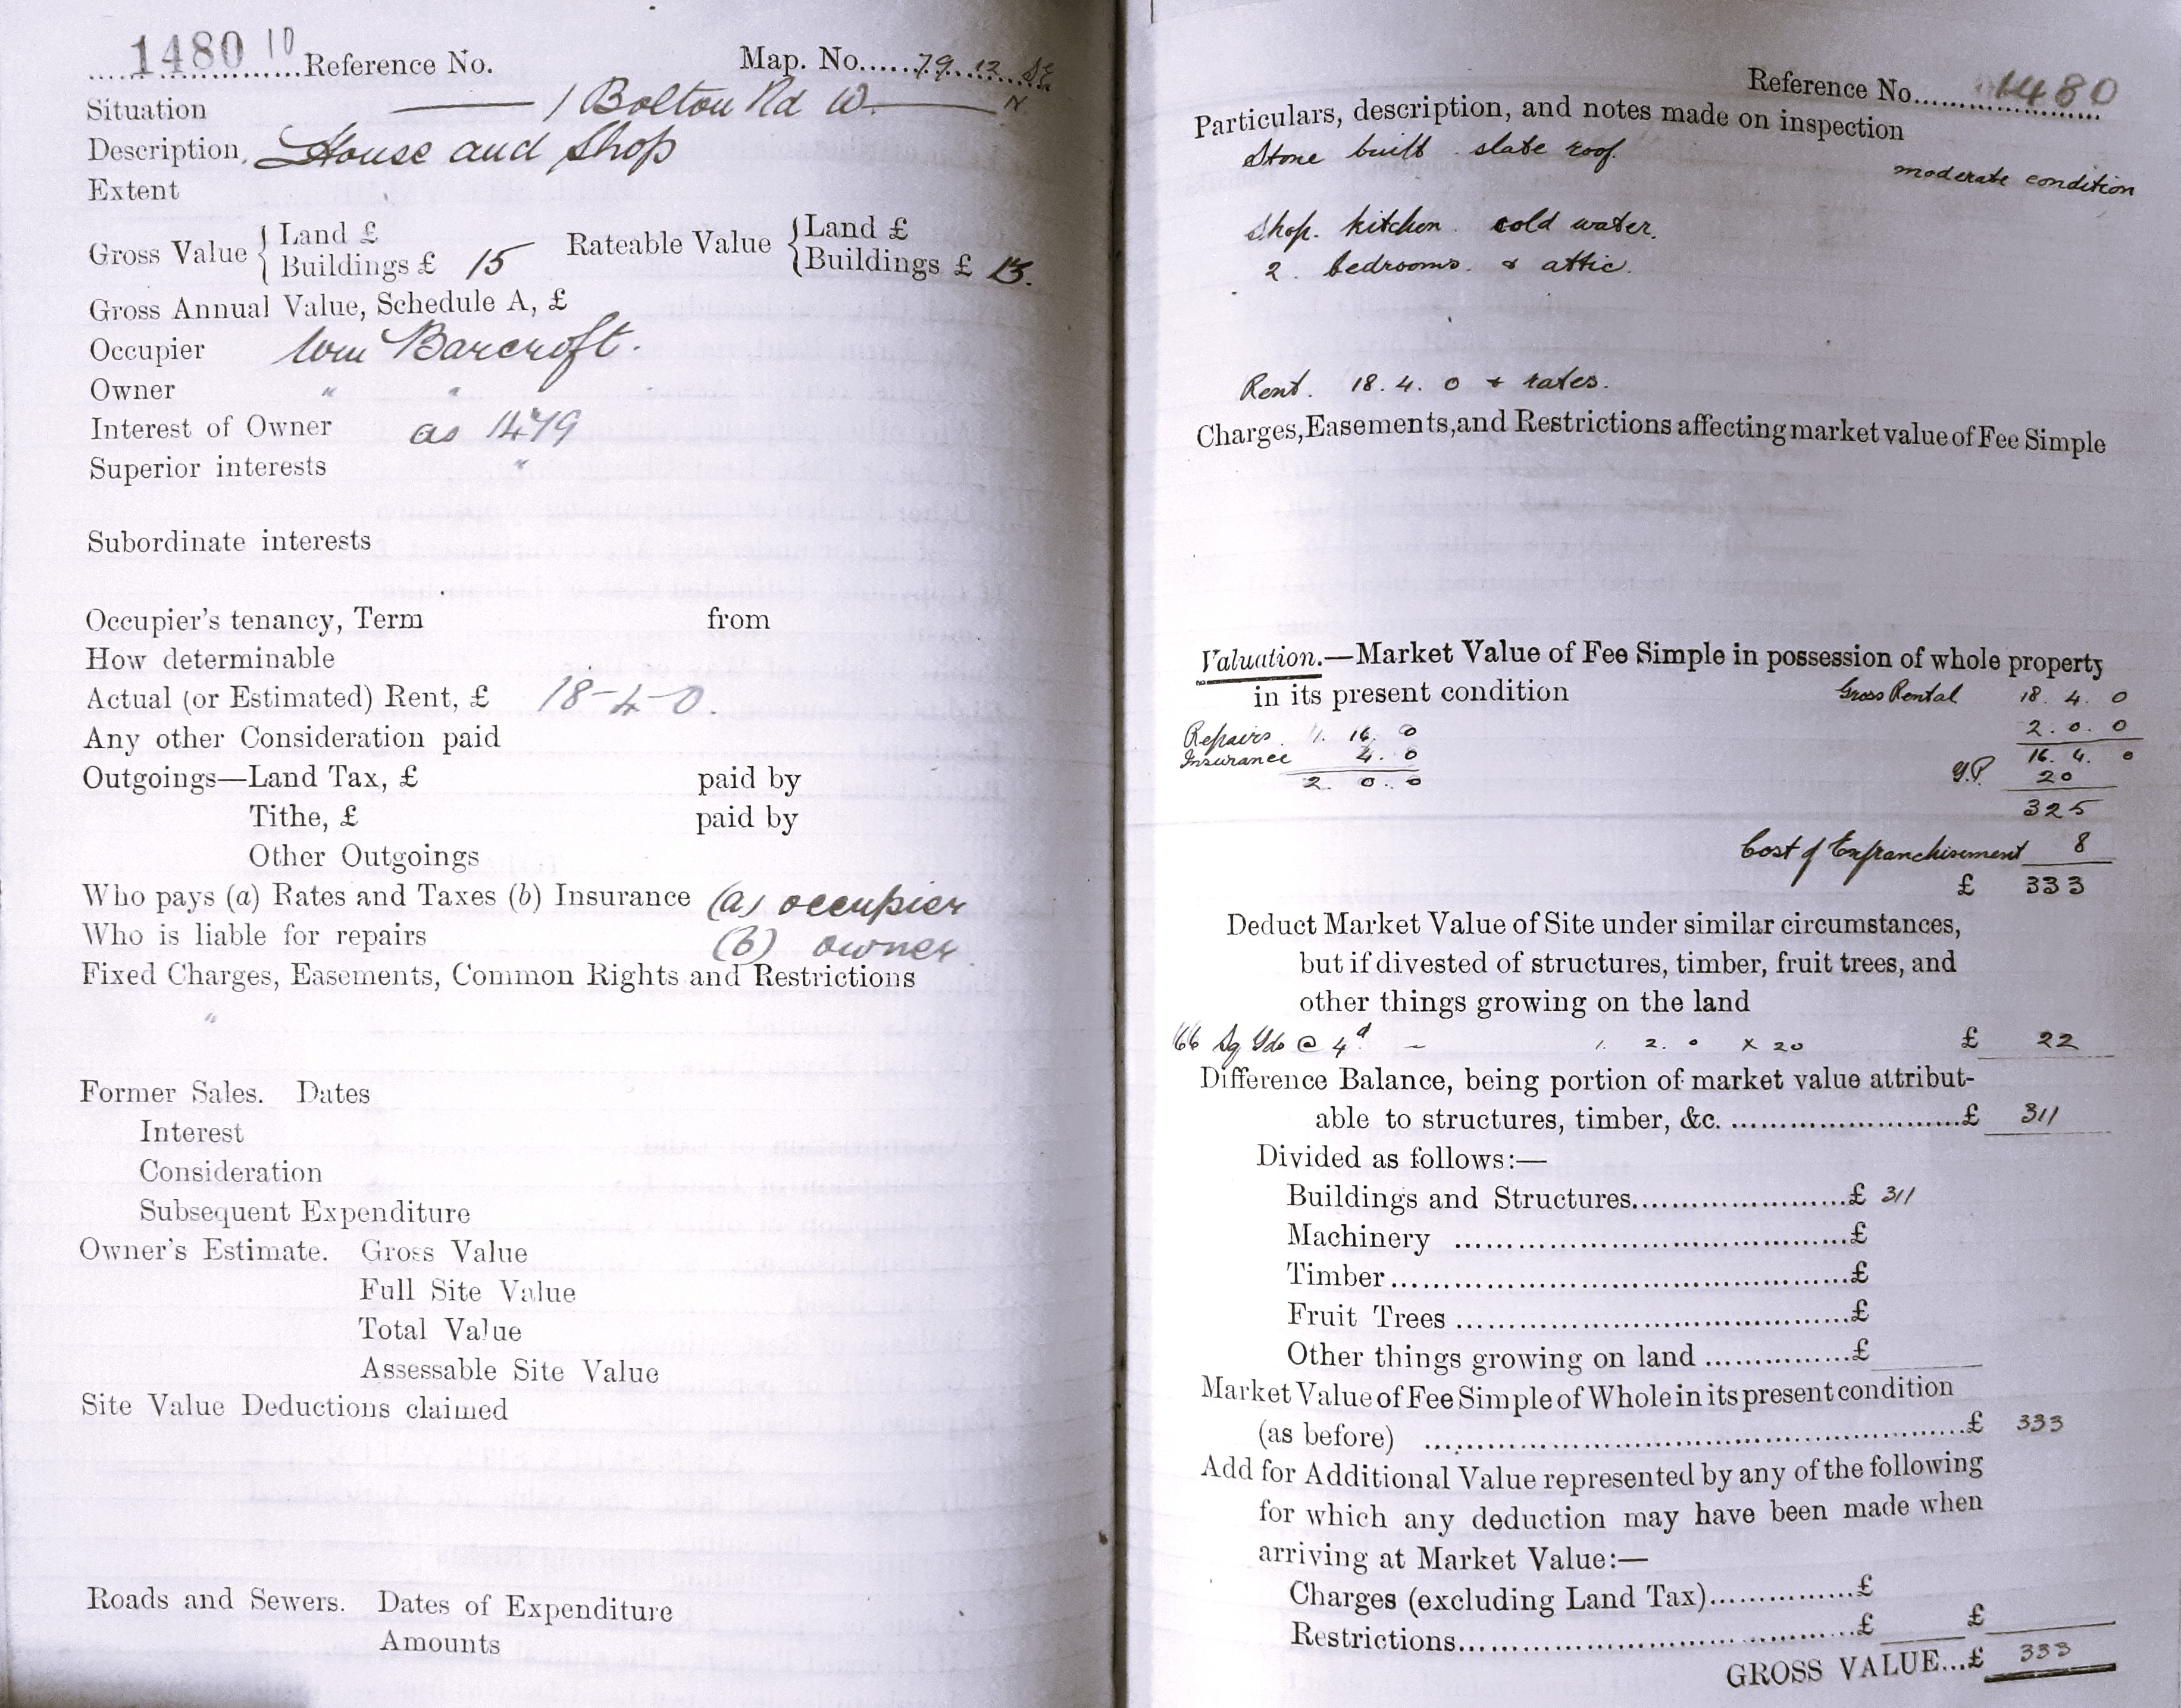 1480 10 Reference No. Map. No. 79.12 SE
Situation 1 Bolton Rd W. N.
Description. House and Shop
Extent
Gross Value { Land £
Buildings £ 15
Rateable Value { Land £
Buildings £ 13.
Gross Annual Value, Schedule A, £
Occupier Wm Barcroft.
Owner " "
Interest of Owner as 1479
Superior interests "
Subordinate interests
Occupier's tenancy, Term from
How determinable
Actual (or Estimated) Rent, £ 18-4-0.
Any other Consideration paid
Outgoings—Land Tax, £ paid by
Tithe, £ paid by
Other Outgoings
Who pays (a) Rates and Taxes (b) Insurance (a) occupier
Who is liable for repairs (b) owner
Fixed Charges, Easements, Common Rights and Restrictions
"
Former Sales. Dates
Interest
Consideration
Subsequent Expenditure
Owner's Estimate. Gross Value
Full Site Value
Total Value
Assessable Site Value
Site Value Deductions claimed
Roads and Sewers. Dates of Expenditure
Amounts
Reference No. 1480
Particulars, description, and notes made on inspection
Stone built. slate roof.
moderate condition
Shop. kitchen. cold water.
2. bedrooms. & attic.
Rent. 18.4.0 & rates.
Charges, Easements, and Restrictions affecting market value of Fee Simple
Valuation.—Market Value of Fee Simple in possession of whole property
in its present condition Gross Rental 18.4.0
Repairs. 1. 16. 0 2.0.0
Insurance 4. 0 16.4.0
2. 0. 0 Y.P. 20
325
Cost of Enfranchisement 8
£ 333
Deduct Market Value of Site under similar circumstances,
but if divested of structures, timber, fruit trees, and
other things growing on the land
66 Sq Yds @ 4d – 1. 2. 0 x 20 £ 22
Difference Balance, being portion of market value attribut-
able to structures, timber, &c. £ 311
Divided as follows:—
Buildings and Structures £ 311
Machinery £
Timber £
Fruit Trees £
Other things growing on land £
Market Value of Fee Simple of Whole in its present condition
(as before) £ 333
Add for Additional Value represented by any of the following
for which any deduction may have been made when
arriving at Market Value:—
Charges (excluding Land Tax) £
Restrictions £ £
GROSS VALUE...£ 333